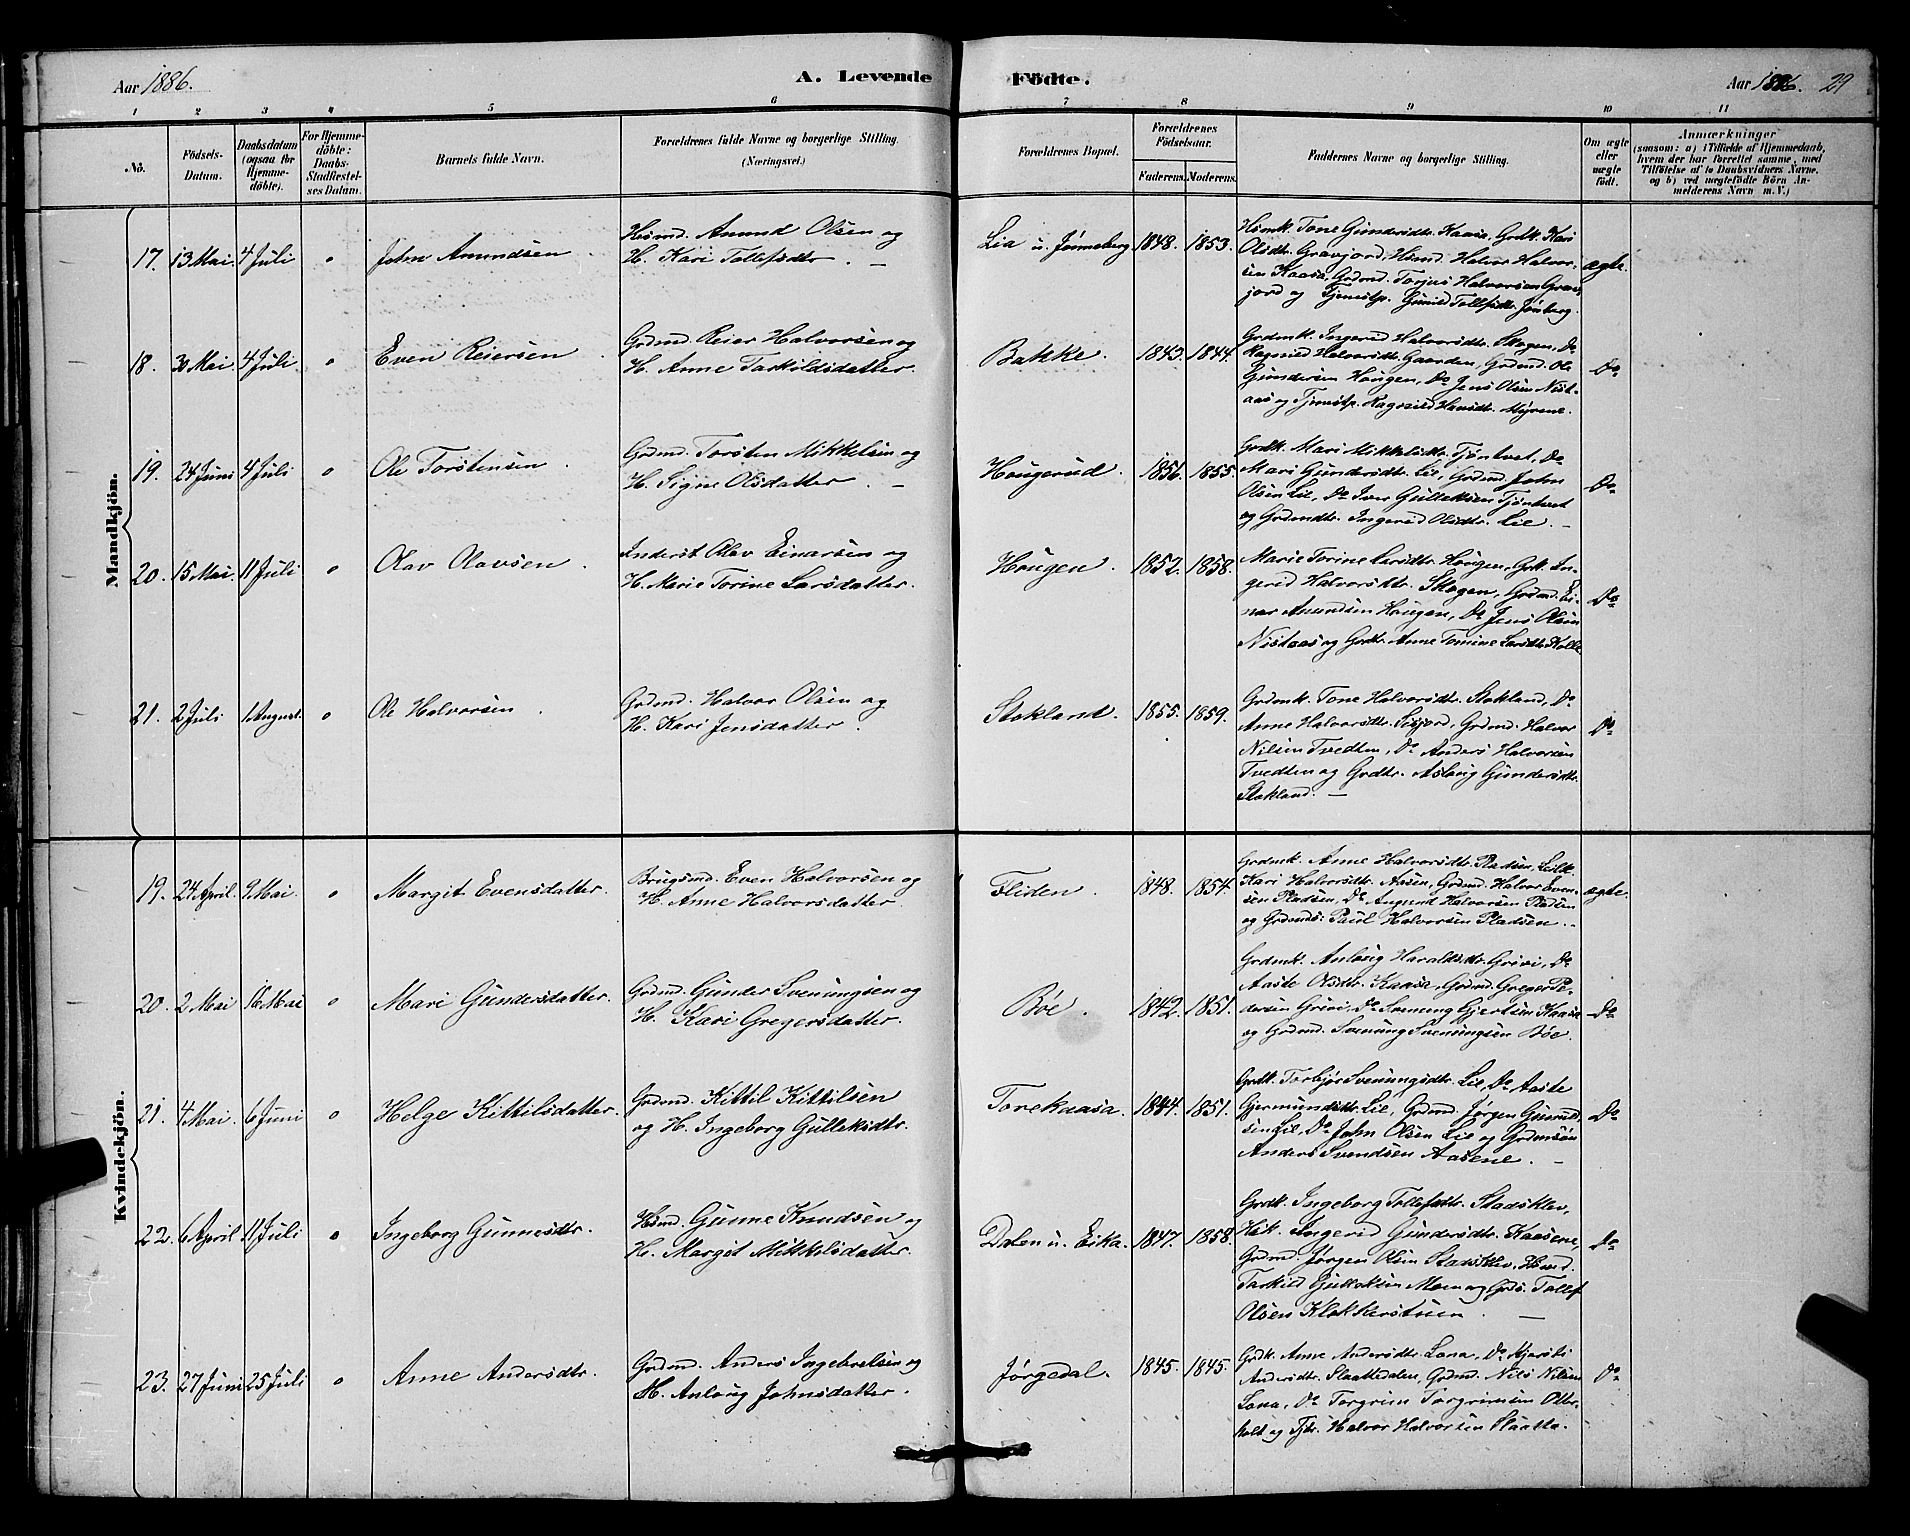 Aar 1886.
A. Levende Fødte.
Aar 1886. 29
1 2 3 4 5 6 7 8 9 10 11
No.
Födsels-
Datum.
Daabsdatum
(ogsaa for
Hjemme-
döbte).
For Hjemme-
döbte:
Daabs-
Stadfæstel-
ses Datum.
Barnets fulde Navn.
Forældrenes fulde Navne og borgerlige Stilling.
(Næringsvei.)
Forældrenes Bopæl.
Forældrenes
Födselsaar.
Faderens. Moderens.
Faddernes Navne og borgerlige Stilling.
Om ægte
eller
uægte
födt.
Anmærkninger
(saasom: a) i Tilfælde af Hjemmedaab,
hvem der har forrettet samme, med
Tilföielse af to Daabsvidners Navne,
og b) ved uægtefödte Börn An-
melderens Navn m. V.)
Mandkjön.
17. 13 Mai. 4 Juli o John Amundsen
Husmd. Amund Olsen og
H. Kari Tollefsdtr. —
Lia u. Jønneberg 1848. 1853.
Husmk. Tone Gundersdtr. Kaasa, Grdk. Kari
Olsdtr. Gravjord, Husmd. Halvor Halvor-
sen Kaasa, Grdmd. Torjus Halvorsen Grav-
jord og Tjenestp. Gunild Tollefsdtr. Jönberg.
ægte.
18. 30 Mai. 4 Juli. o Even Reiersen
Grdmd. Reier Halvorsen og
H. Anne Tarkildsdatter.
Bakke. 1843. 1844.
Grdmk. Ingerid Halvorsdtr. Skogen, Do
Ragnild Halvorsdtr. Gaarden, Grdmd. Ole
Gundersen Hougen, Do Jens Olsen Nist-
aas og Tjenestp. Ragnild Hansdtr. Myrene.
Do
19. 24 Juni 4 Juli o Ole Torstensen
Grdmd. Torsten Mikkelsen og
H. Signe Olsdatter. —
Hougerud. 1856. 1855.
Grdk. Mari Mikkelsdtr. Tjöntvet, Do
Mari Gundersdtr. Lie, Grdmd. John
Olsen Lie, Do Iver Gulleksen Tjöntvet
og Grdmdtr. Ingerid Olsdtr. Lie. —
Do
20. 15 Mai. 11 Juli o Olav Olavsen
Inderst Olav Einarsen og
H. Marie Torine Larsdatter.
Hougen. 1852. 1858.
Marie Torine Larsdtr. Hougen, Grdk. In-
gerid Halvorsdtr. Skogen, Grdmd. Ei-
nar Amundsen Hougen, Do Jens Olsen
Nistaas og Grdtr. Anne Tomine Larsdtr. Kolle
Do
21. 2 Juli 1 August. o Ole Halvorsen
Grdmd. Halvor Olsen og
H. Kari Jensdatter.
Stokland. 1855. 1859.
Grdmk. Tone Halvorsdtr. Stokland, Do
Anne Halvorsdtr. Grdmd. Halvor
Nilsen Tvedten, Do Anders Halvorsen
Tvedten og Grdtr. Aslaug Gundersdtr.
Stokland. —
Do
Kvindekjön.
19. 24 April. 9 Mai. o Margit Evensdatter.
Brugsmd. Even Halvorsen og
H. Anne Halvorsdatter.
Fliden. 1848. 1854.
Grdmk. Anne Halvorsdtr. Pladsen,
Kari Halvorsdtr. Aasen, Grdmd. Halvor Even-
sen Pladsen, Do Amund Halvorsen Pladsen
og Grdmds: Paul Halvorsen Pladsen.
ægte.
20. 2 Mai 16 Mai o Mari Gundersdatter.
Grdmd. Gunder Svenungsen og
H. Kari Gregersdatter.
Böe. 1842. 1851.
Grdmk. Anlaug Haraldsdtr. Grivi, Do
Aaste Olsdtr. Kaasa, Grdmd. Greger Pe-
dersen Grivi, Do Svenung Gjertsen Kaasa
og Grdmd. Svenung Svenungsen Böe.
Do
21. 4 Mai 6 Juni o Helge Kittilsdatter.
Grdmd. Kittil Kittilsen
og H. Ingeborg Gulleksdtr.
Torekaasa. 1844. 1851.
Grdk. Torbjør Svenungsdtr. Lie, Do Aaste
Gjermundsdtr. Lie, Grdmd. Jørgen Gunuld-
sen Lie, Do John Olsen Lie og Grdmsøn
Anders Svendsen Aasene. —
Do
22. 6 April 11 Juli o Ingeborg Gunnesdtr.
Husmd. Gunne Knudsen og
H. Margit Mikkelsdatter.
Dalen u. Eika. 1847. 1858.
Grdk. Ingeborg Tollefsdtr. Stadsklev,
Husk. Ingerid Gundersdtr. Kaasene,
Grdmd. Jørgen Olsen Stadsklev, Husmd.
Tarkild Gulleksen Moen og Grds. Tollef
Olsen Klokkerstuen. —
Do
23. 27 Juni 25 Juli o Anne Andersdtr.
Grdmd. Anders Ingebretsen og
H. Anlaug Johnsdatter.
Jørgedal. 1845. 1845.
Grdk. Anne Andersdtr. Lona, Do Kjersti
Andersdtr. Slaattedalen, Grdmd. Nils Nilsen
Lona, Do Torgrim Torgrimsen Otter-
holt og Tjtr. Halvor Halvorsen Slaatta.
Do